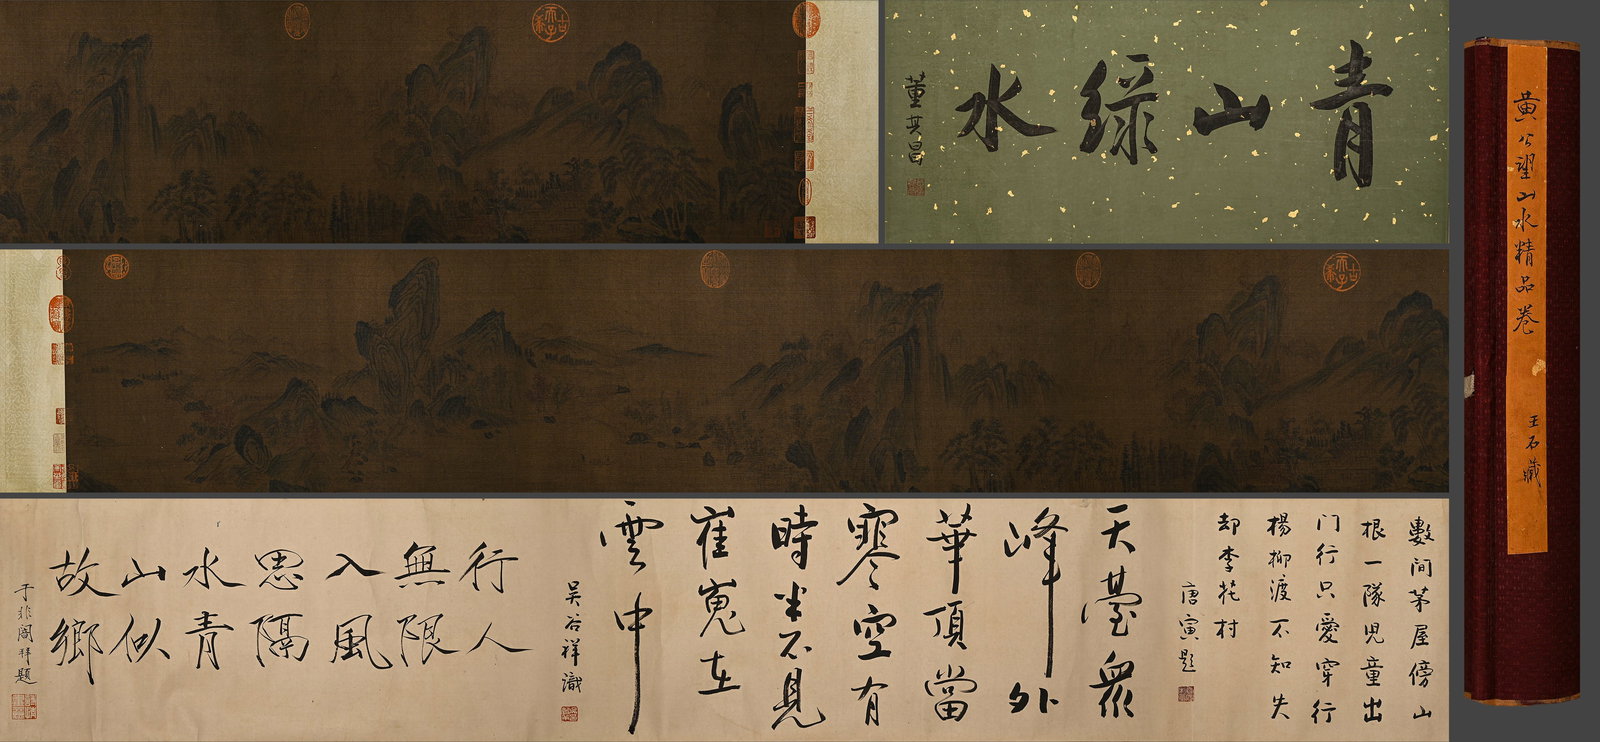 青山綠水
董其昌
黃公望山水精品卷
王石藏
數間茅屋傍山
根一隊児童出
门行只愛穿行
楊柳渡不知失
却李花村
唐寅題
天臺眾
峰外
華頂當
寒空有
時半不見
崔嵬在
雲中
吴谷祥識
行人
無限
入風
思隔
水青
山似
故鄉
于非闇拜題